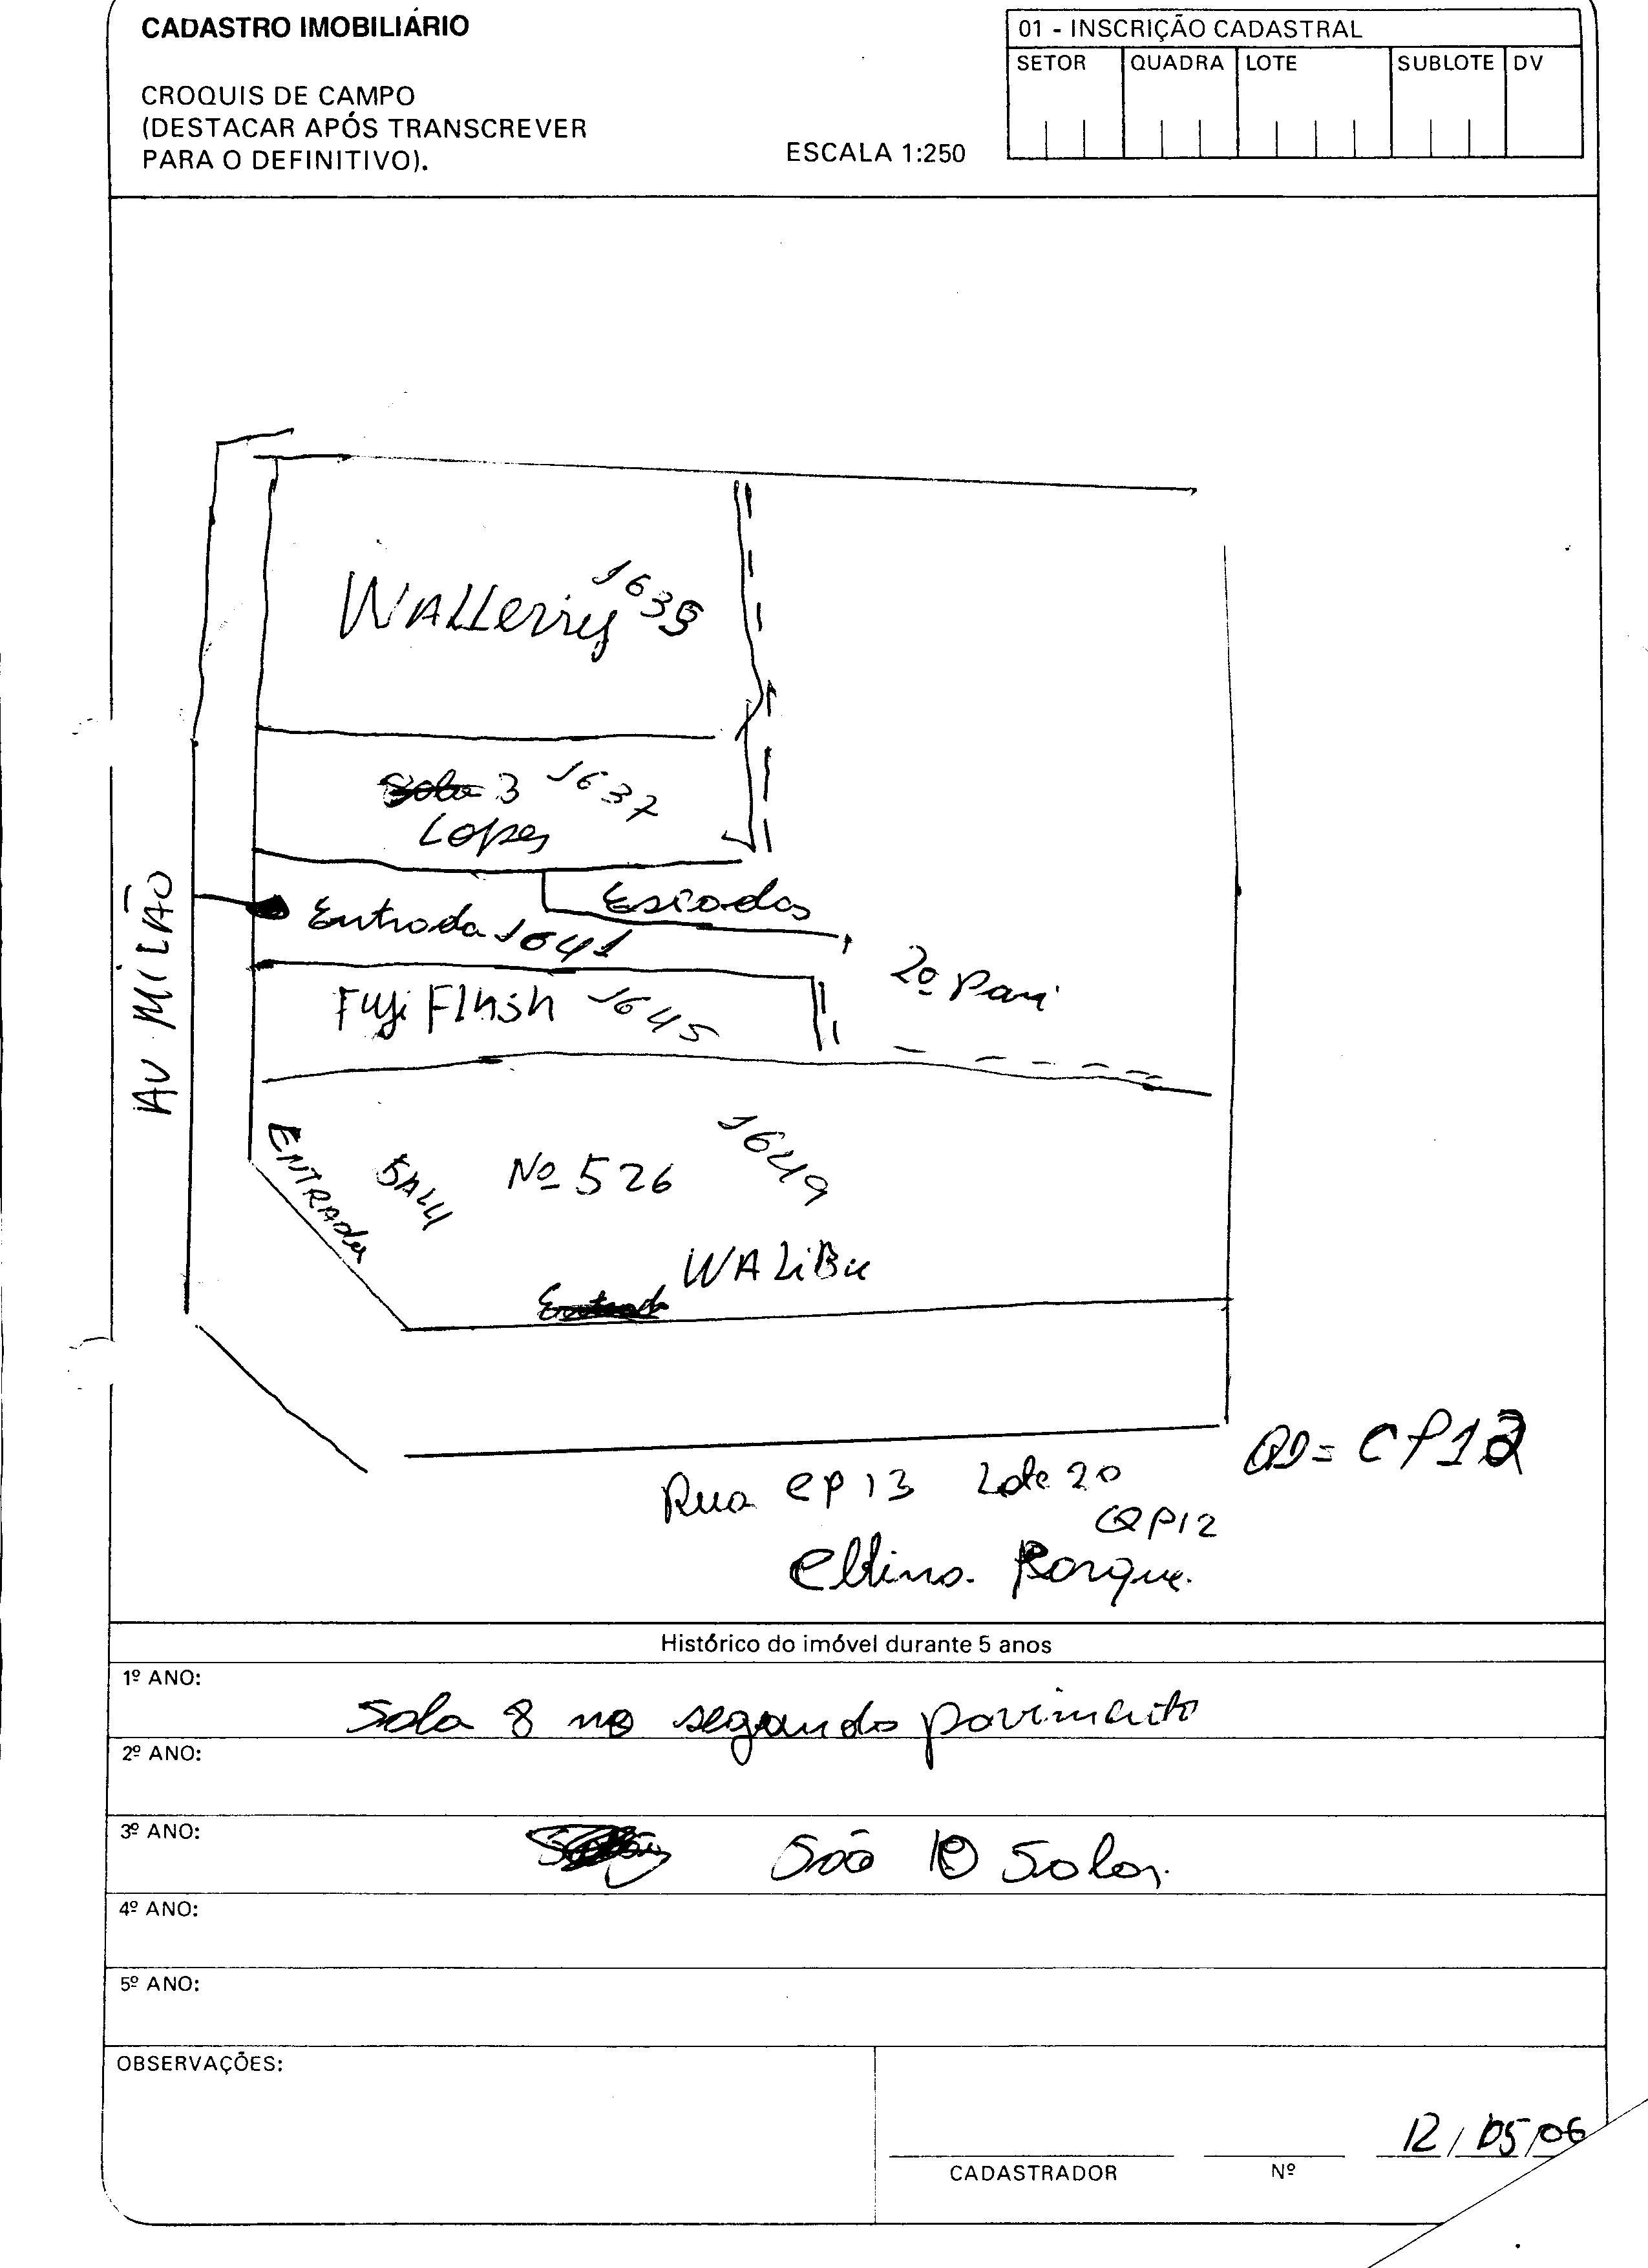 CADASTRO IMOBILIÁRIO
CROQUIS DE CAMPO
(DESTACAR APÓS TRANSCREVER
PARA O DEFINITIVO).
ESCALA 1:250
01 - INSCRIÇÃO CADASTRAL
SETOR QUADRA LOTE SUBLOTE DV
1635
3 1637
Lopes
Escadas
Entrada 1641
AV MILÃO
2º Pavi
Fuji Flash 1645
ENTRADA
Nº 526 1649
WALiBu
QD= CP12
Rua CP13 Lote 20
QP12
Histórico do imóvel durante 5 anos
1º ANO:
Sala 8 no segundo pavimento
2º ANO:
3º ANO:
São 10 Salas.
4º ANO:
5º ANO:
OBSERVAÇÕES:
12/05/06
CADASTRADOR Nº